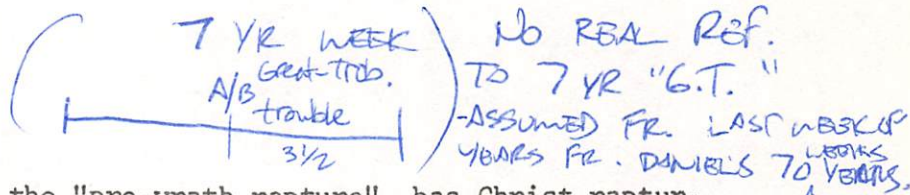 7 YR WEEK
Great-Trib.
A/B trouble
3½
No REAL REF.
TO 7 YR "G.T."
-ASSUMED FR. LAST WEEK OF
YEARS FR. DANIEL'S 70 WEEKS YEARS.
the "pre-wrath rapture", has Christ raptur